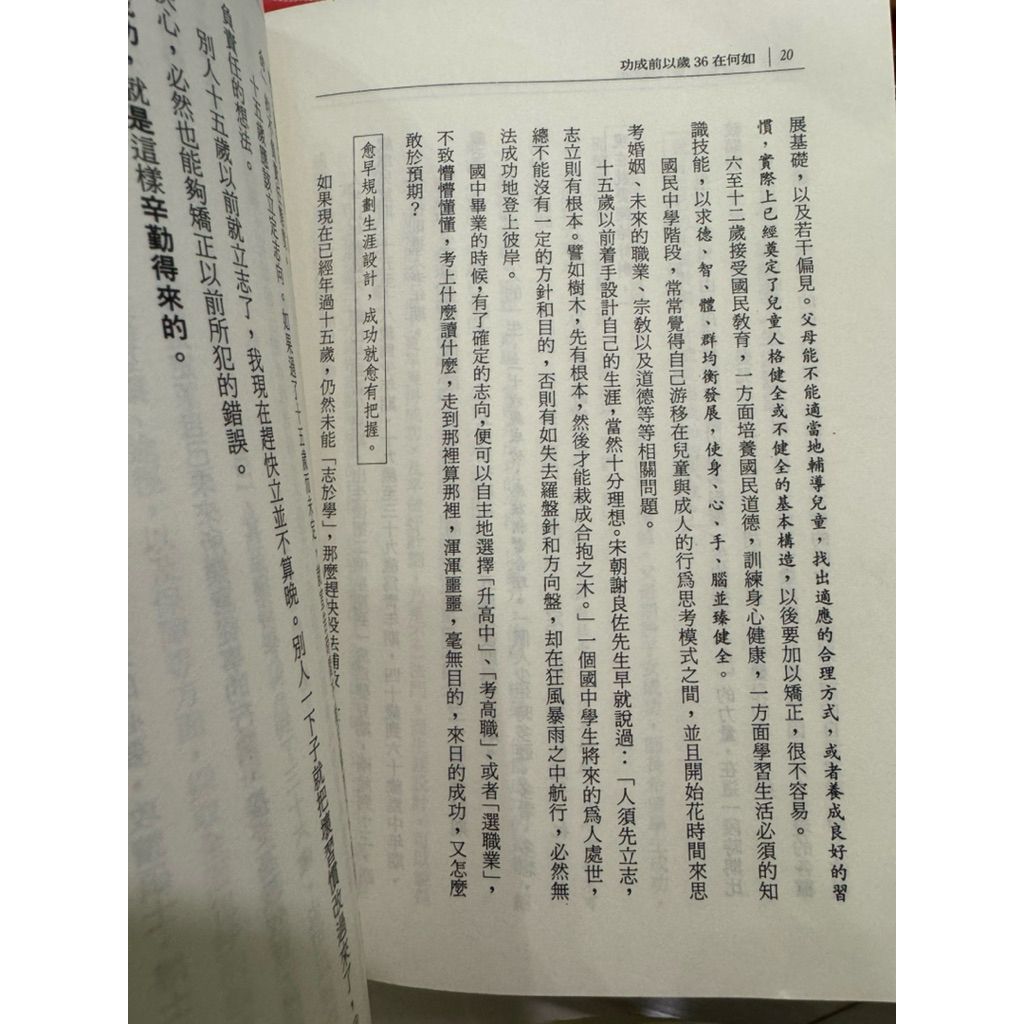 功成前以歲36在何如 20
展基礎，以及若干偏見。父母能不能適當地輔導兒童，找出適應的合理方式，或者養成良好的習
慣，實際上已經奠定了兒童人格健全或不健全的基本構造，以後要加以矯正，很不容易。
六至十二歲接受國民教育，一方面培養國民道德，訓練身心健康，一方面學習生活必須的知
識技能，以求德、智、體、群均衡發展，使身、心、手、腦並臻健全。
國民中學階段，常常覺得自己游移在兒童與成人的行爲思考模式之間，並且開始花時間來思
考婚姻、未來的職業、宗教以及道德等等相關問題。
十五歲以前着手設計自己的生涯，當然十分理想。宋朝謝良佐先生早就說過：「人須先立志，
志立則有根本。譬如樹木，先有根本，然後才能栽成合抱之木。」一個國中學生將來的爲人處世，
總不能沒有一定的方針和目的，否則有如失去羅盤針和方向盤，却在狂風暴雨之中航行，必然無
法成功地登上彼岸。
國中畢業的時候，有了確定的志向，便可以自主地選擇「升高中」、「考高職」、或者「選職業」，
不致懵懵懂懂，考上什麼讀什麼，走到那裡算那裡，渾渾噩噩，毫無目的，來日的成功，又怎麼
敢於預期？
愈早規劃生涯設計，成功就愈有把握。
如果現在已經年過十五歲，仍然未能「志於學」，那麼趕快設法補救
十五歲應該立定志向。如果過了十五歲而未
負責任的想法。
別人十五歲以前就立志了，我現在趕快立並不算晚。別人一下子就把壞習慣改過來了，
決心，必然也能夠矯正以前所犯的錯誤。
功，就是這樣辛勤得來的。